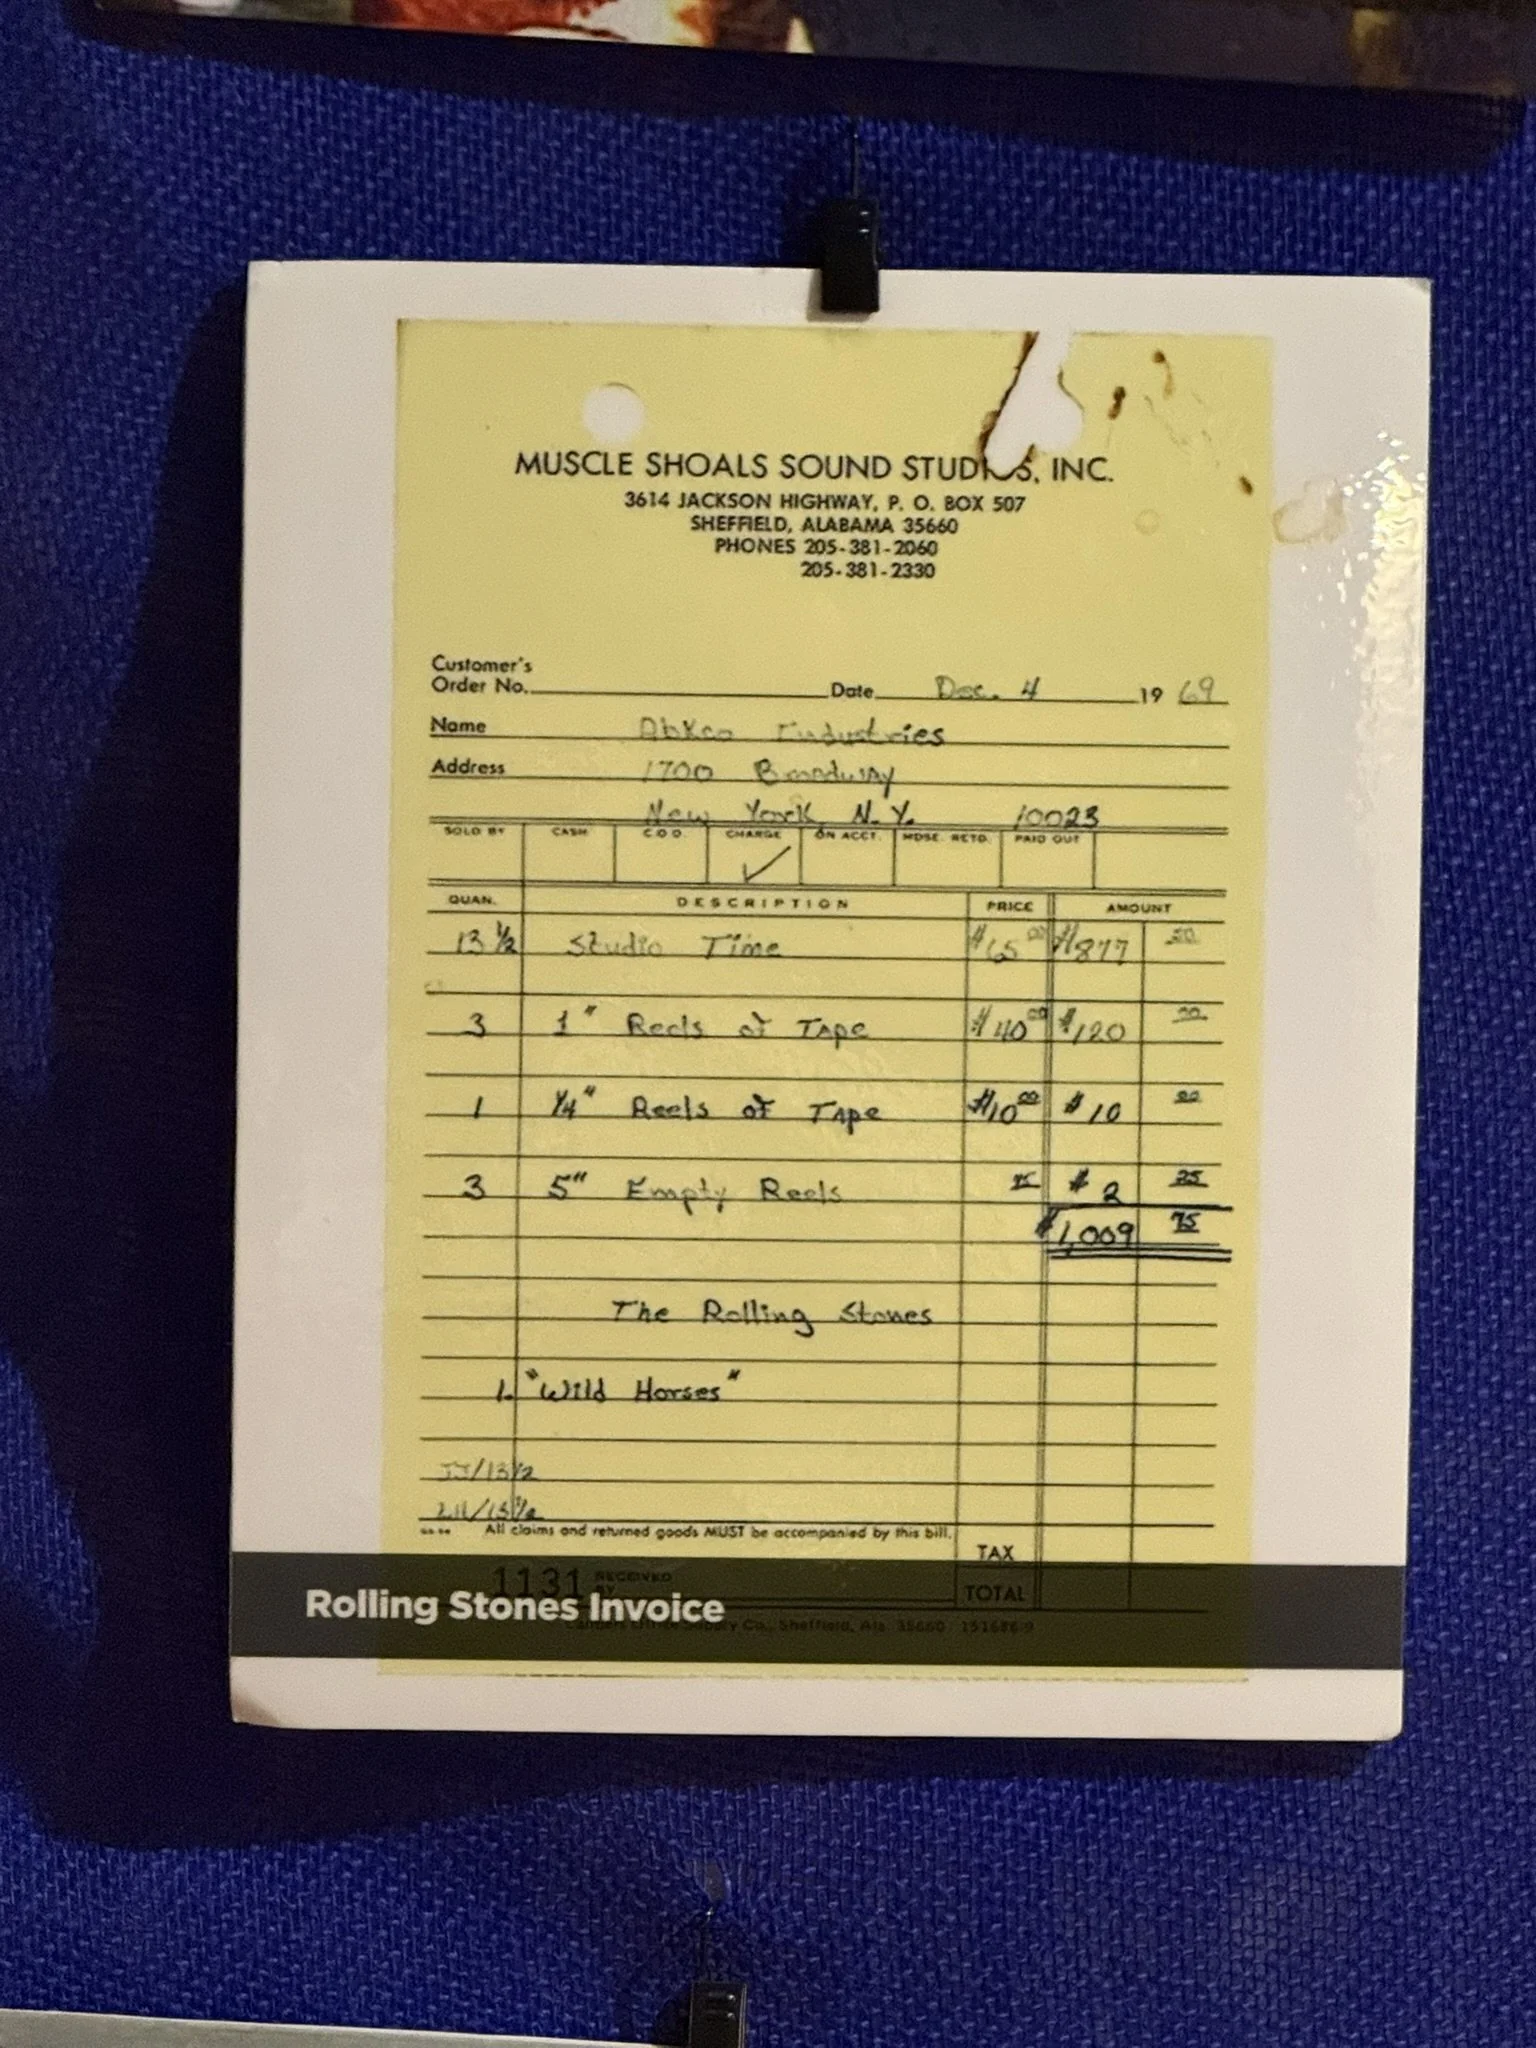 MUSCLE SHOALS SOUND STUDIOS, INC.
3614 JACKSON HIGHWAY, P. O. BOX 507
SHEFFIELD, ALABAMA 35660
PHONES 205-381-2060
205-381-2330
Customer's
Order No. Date Dec. 4 19 69
Name Abkco Industries
Address 1700 Broadway
New York, N.Y. 10023
SOLD BY CASH C.O.D. CHARGE ON ACCT. MDSE. RETD. PAID OUT
✓
QUAN. DESCRIPTION PRICE AMOUNT
13 1/2 Studio Time $65 00 $877 50
3 1" Reels of Tape $40 00 $120 00
1 1/4" Reels of Tape $10 00 $10 00
3 5" Empty Reels 75 $2 25
$1,009 75
The Rolling Stones
1. "Wild Horses"
JJ/13 1/2
LH/13 1/2
All claims and returned goods MUST be accompanied by this bill.
TAX
1131 RECEIVED BY TOTAL
Rolling Stones Invoice
Sheffield, Ala. 35660